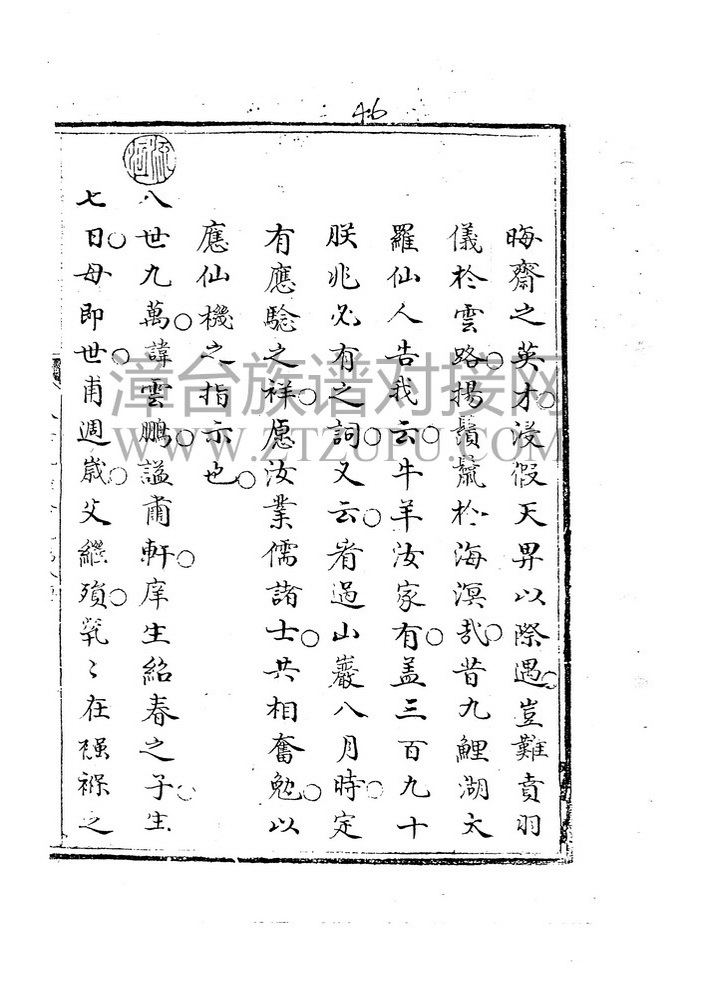 46
晦齋之英才浸假天畀以際遇豈難賁羽
儀於雲路揚鬚鬣於海溟哉昔九鯉湖太
羅仙人告我云牛羊汝家有盖三百九十
朕兆必有之詞又云看過山巖八月時定
有應驗之祥愿汝業儒諸士共相奮勉以
應仙機之指示也
八世九萬諱雲鵬謚甫軒庠生紹春之子生
七日母即世甫週歲父繼殞煢〻在襁褓之
漳台族谱对接网
WWW.ZTZUFU.COM